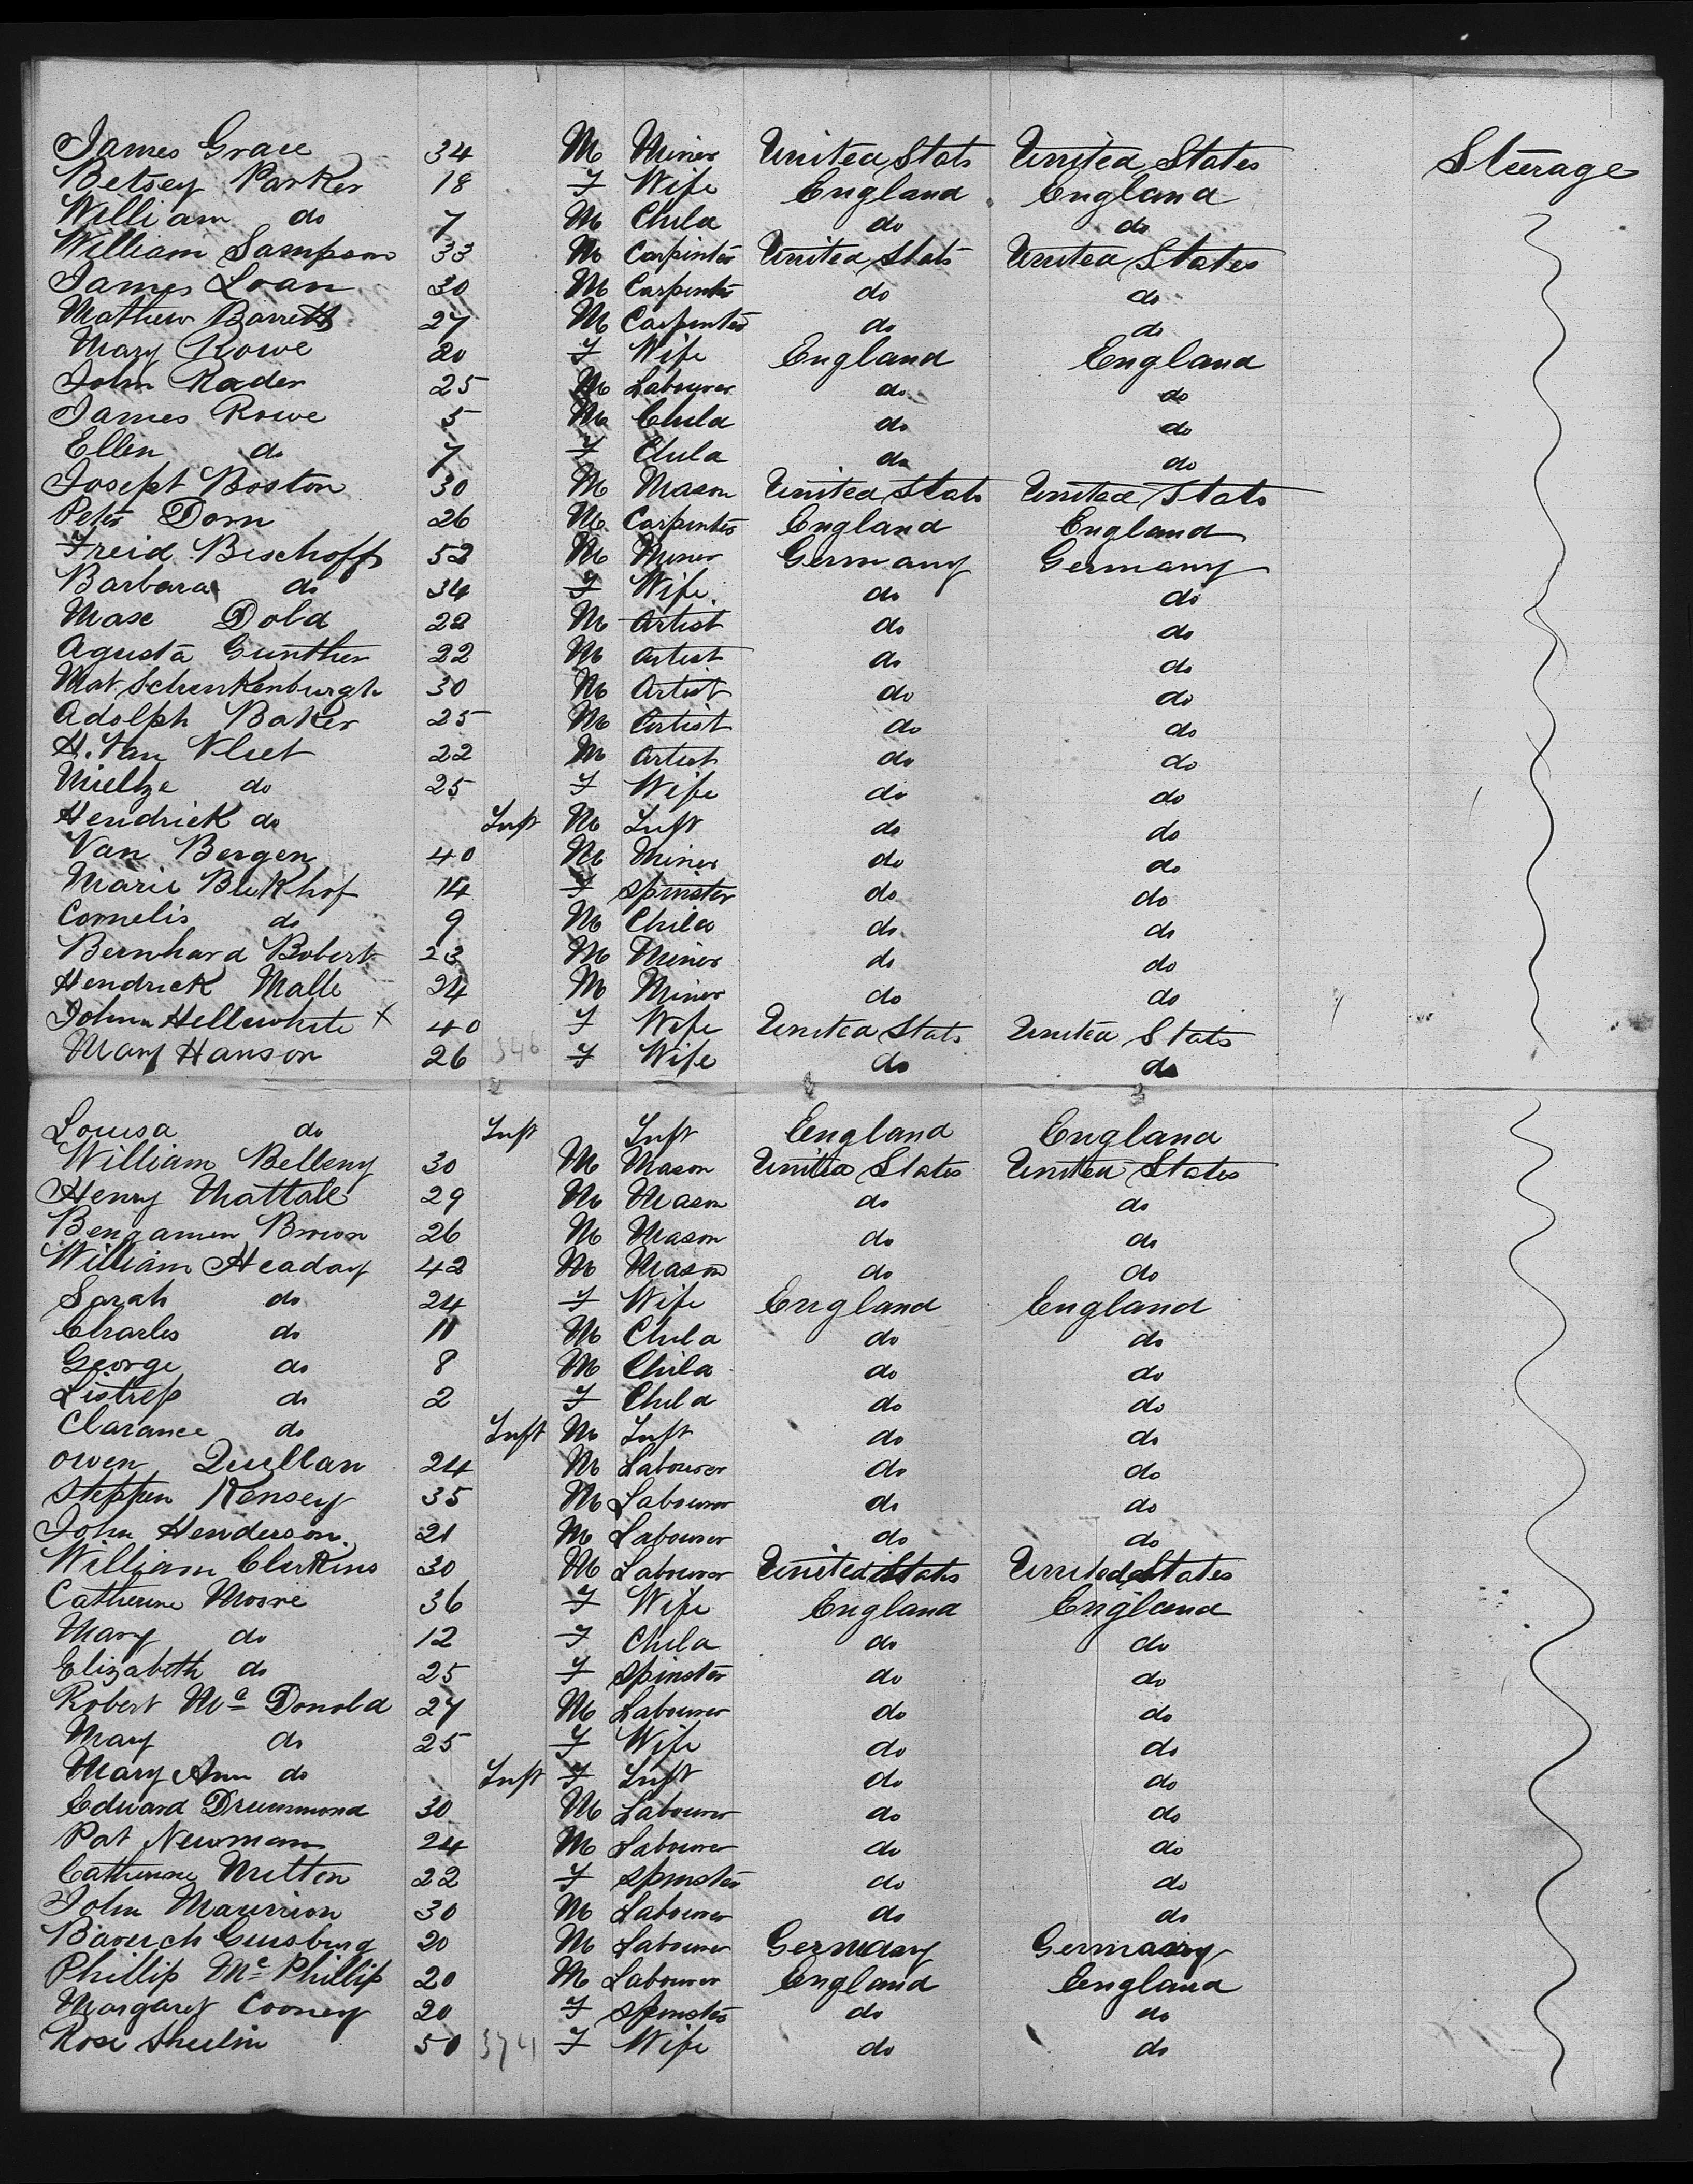 James Grace 34 M Miner United Stats United States Steerage
Betsey Parker 18 F Wife England England
William do 7 M Child do do
William Sampson 33 M Carpinter United Stats United States
James Loan 30 M Carpenter do do
Mathew Barrett 27 M Carpenter do do
Mary Rowe 20 F Wife England England
John Rader 25 M Labourer do do
James Rowe 5 M Child do do
Ellen do 7 F Child do do
Joseph Boston 30 M Mason United Stats United Stats
Peter Dorn 26 M Carpenter England England
Freid Bischoff 52 M Miner Germany Germany
Barbara do 34 F Wife do do
Max Dold 22 M Artist do do
Agusta Gunther 22 M Artist do do
Mat Schenkenburgh 30 M Artist do do
Adolph Baker 25 M Artist do do
H. Van Vleet 22 M Artist do do
Mieltze do 25 F Wife do do
Hendrick do Inft M Inft do do
Van Bergen 40 M Miner do do
Marie Blekhof 14 F Spinster do do
Cornelis do 9 M Child do do
Bernhard Bobert 23 M Miner do do
Hendrick Malle 24 M Miner do do
Johnn Hellewhite X 40 F Wife United Stats United Stats
Mary Hanson 26 346 F Wife do do
Louisa do Inft Inft England England
William Belleny 30 M Mason United States United States
Henry Mattale 29 M Mason do do
Bengamen Brown 26 M Mason do do
William Headay 42 M Mason do do
Sarah do 24 F Wife England England
Charles do 11 M Child do do
George do 8 M Child do do
do 2 F Child do do
Clarance do Inft M Inft do do
Owen Quillan 24 M Labourer do do
Stephen Kensey 35 M Labourer do do
John Henderson 21 M Labourer do do
William Clerkins 30 M Labourer United States United States
Catherine Moore 36 F Wife England England
Mary do 12 F Child do do
Elizabeth do 25 F Spinster do do
Robert Mc Donold 27 M Labourer do do
Mary do 25 F Wife do do
Mary Ann do Inft F Inft do do
Edward Drummond 30 M Labourer do do
Pat Newman 24 M Labourer do do
Catherine Mutton 22 F Spinster do do
John Maurrion 30 M Labourer do do
Baruch Guisburg 20 M Labourer Germany Germany
Phillip Mc Phillip 20 M Labourer England England
Margaret Cooney 20 F Spinster do do
Rose Sheelin 50 374 F Wife do do